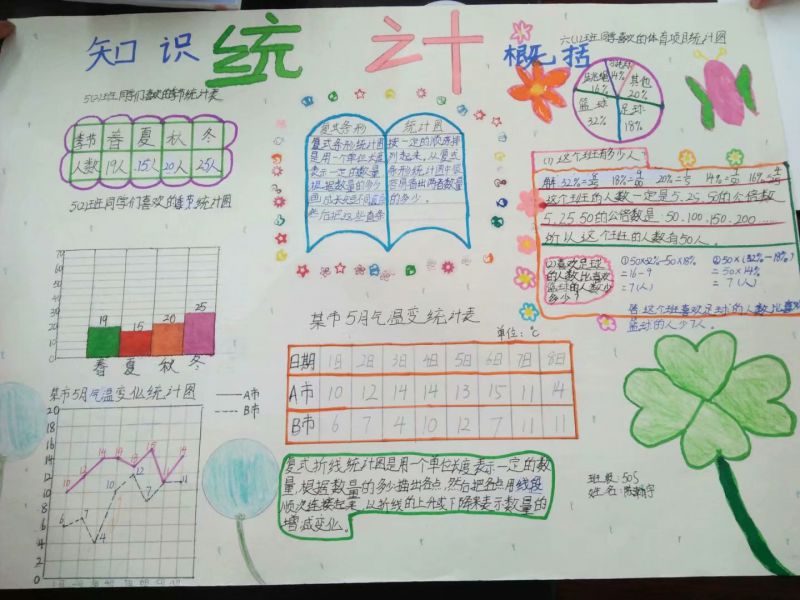 知识统计概括
5(2)班同学们喜欢的季节统计表
季节 春 夏 秋 冬
人数 19人 15人 20人 25人
5(2)班同学们喜欢的季节统计图
70
60
50
40
30
20
10
0
19 15 20 25
春 夏 秋 冬
某市5月气温变化统计图
A市
B市
20
18
16
14
12
10
8
6
4
2
0
10 12 14 14 13 15 11 14
6 7 4 10 12 7 11 11
复式条形
复式条形统计图
是用一个单位长度
表示一定的数量
根据数量的多少
画成长短不同直条
然后把这些直条
统计图
按一定的顺序排
列起来,从复式
条形统计图中很
容易看出两者数量
的多少。
某市5月气温变统计表
单位:℃
日期 1日 2日 3日 4日 5日 6日 7日 8日
A市 10 12 14 14 13 15 11 14
B市 6 7 4 10 12 7 11 11
复式折线统计图是用一个单位长度表示一定的数
量,根据数量的多少描出各点,然后把各点用线段
顺次连接起来,以折线的上升或下降来表示数量的
增减变化。
六(1)班同学喜欢的体育项目统计图
14%
16%
其他
20%
篮球
32%
足球
18%
(1)这个班有多少人
这个班的人数一定是5.25.50的公倍数
5.25.50的公倍数是:50.100.150.200
所以这个班的人数有50人。
(2)喜欢足球
的人数比喜欢
篮球的人数少
多少?
①50×32%-50×18%
=16-9
=7(人)
②50×(32%-18%)
=50×14%
=7(人)
答:这个班喜欢足球的人数比喜欢
篮球的人少7人。
班级:505